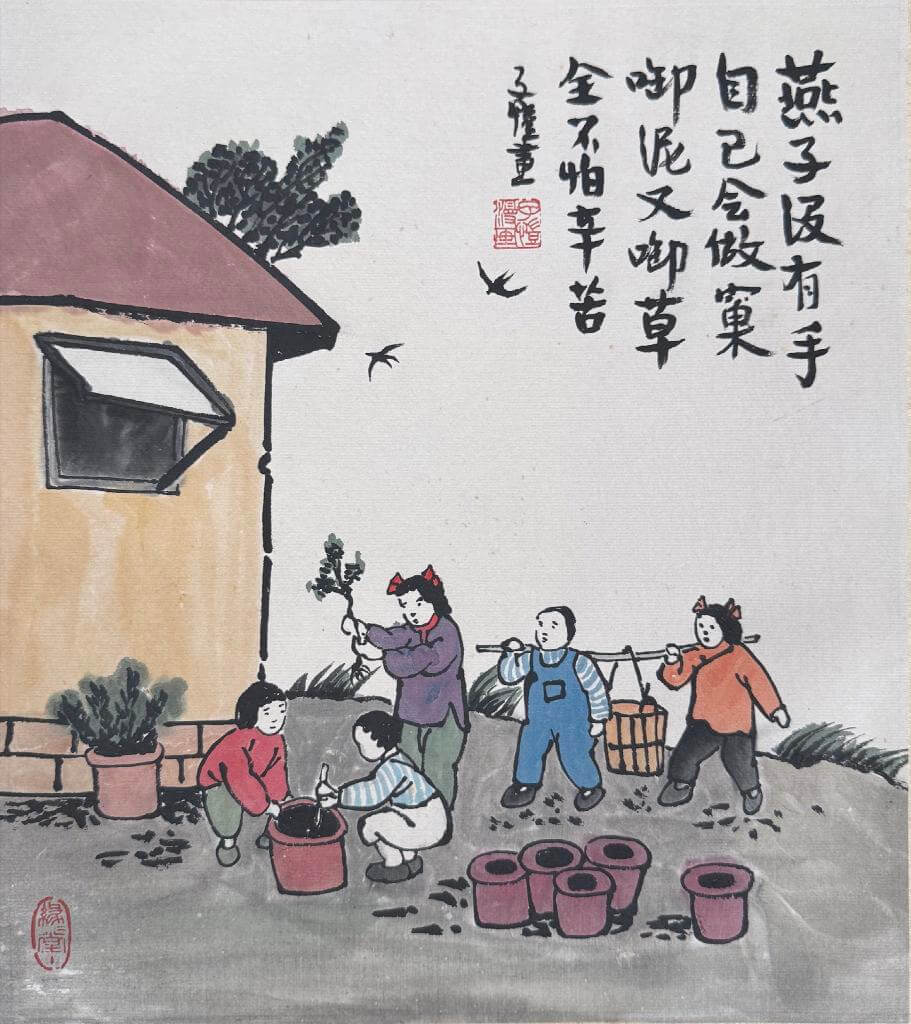 燕子没有手
自己会做窠
啣泥又啣草
全不怕辛苦
子愷畫
子愷
漫画